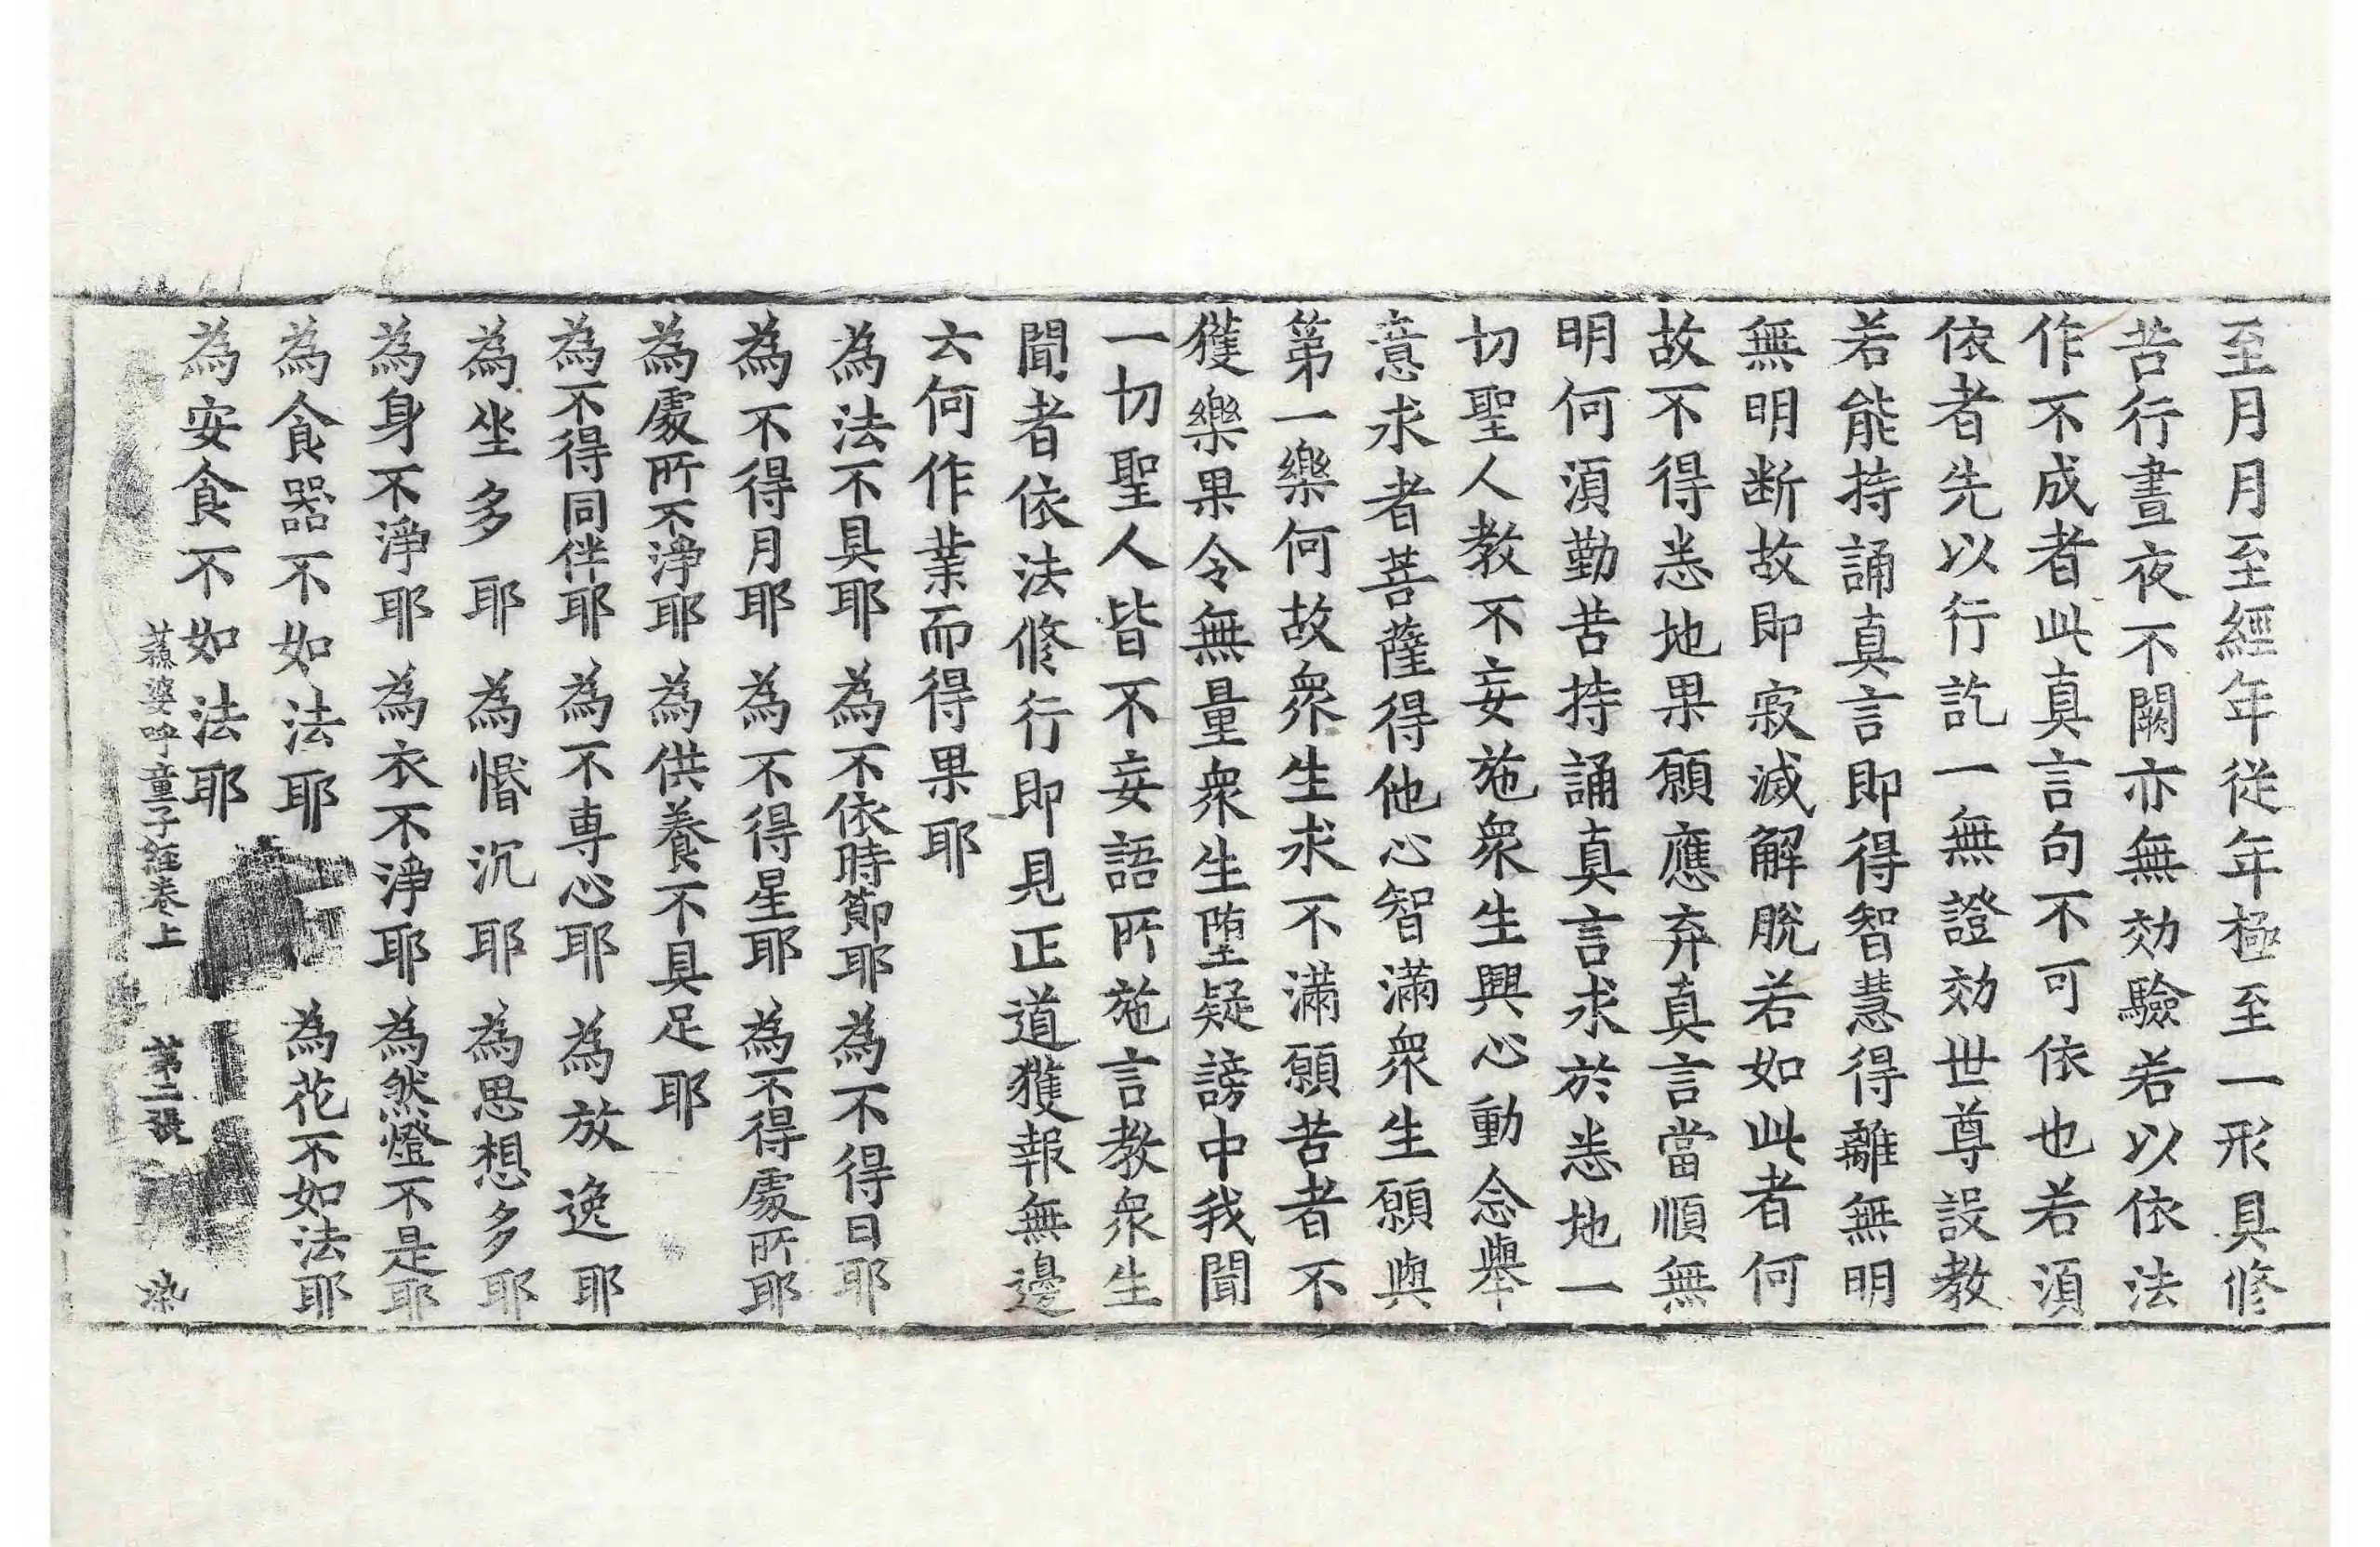 至月月至經年從年極至一形具修
苦行晝夜不闕亦無効驗若以依法
作不成者此真言句不可依也若湏
依者先以行訖一無證効世尊設教
若能持誦真言即得智慧得離無明
無明断故即寂滅解脫若如此者何
故不得悉地果願應弃真言當順無
明何湏勤苦持誦真言求於悉地一
切聖人教不妄施衆生興心動念舉
意求者菩薩得他心智滿衆生願與
第一樂何故衆生求不滿願苦者不
獲樂果令無量衆生堕疑謗中我聞
一切聖人皆不妄語所施言教衆生
聞者依法修行即見正道獲報無邊
云何作業而得果耶
為法不具耶 為不依時節耶 為不得日耶
為不得月耶 為不得星耶 為不得處所耶
為處所不淨耶 為供養不具足耶
為不得同伴耶 為不専心耶 為放逸耶
為坐多耶 為惛沉耶 為思想多耶
為身不淨耶 為衣不淨耶 為然燈不是耶
為食器不如法耶 為花不如法耶
為安食不如法耶
蘇婆呼童子經卷上 第二張 染